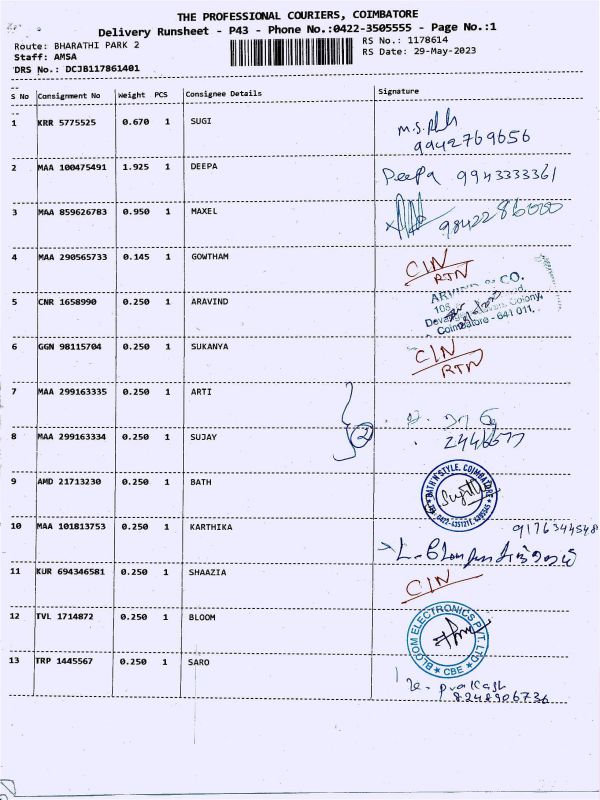 THE PROFESSIONAL COURIERS, COIMBATORE
Delivery Runsheet - P43 - Phone No.:0422-3505555 - Page No.:1
Route: BHARATHI PARK 2
Staff: AMSA
DRS No.: DCJB117861401
RS No.: 1178614
RS Date: 29-May-2023
S No Consignment No Weight PCS Consignee Details Signature
1 KRR 5775525 0.670 1 SUGI
9942769656
2 MAA 100475491 1.925 1 DEEPA Deepa 9943333361
3 MAA 859626783 0.950 1 MAXEL
4 MAA 290565733 0.145 1 GOWTHAM CIN
RTN
5 CNR 1658990 0.250 1 ARAVIND & CO.
Coimbatore - 641 011.
6 GGN 98115704 0.250 1 SUKANYA CIN
RTN
7 MAA 299163335 0.250 1 ARTI
8 MAA 299163334 0.250 1 SUJAY 2
9 AMD 21713230 0.250 1 BATH
BATH N STYLE, COIMBATORE
10 MAA 101813753 0.250 1 KARTHIKA 9176344548
11 KUR 694346581 0.250 1 SHAAZIA CIN
12 TVL 1714872 0.250 1 BLOOM
BLOOM ELECTRONICS PVT. LTD
CBE
13 TRP 1445567 0.250 1 SARO
Prakash
8248906736